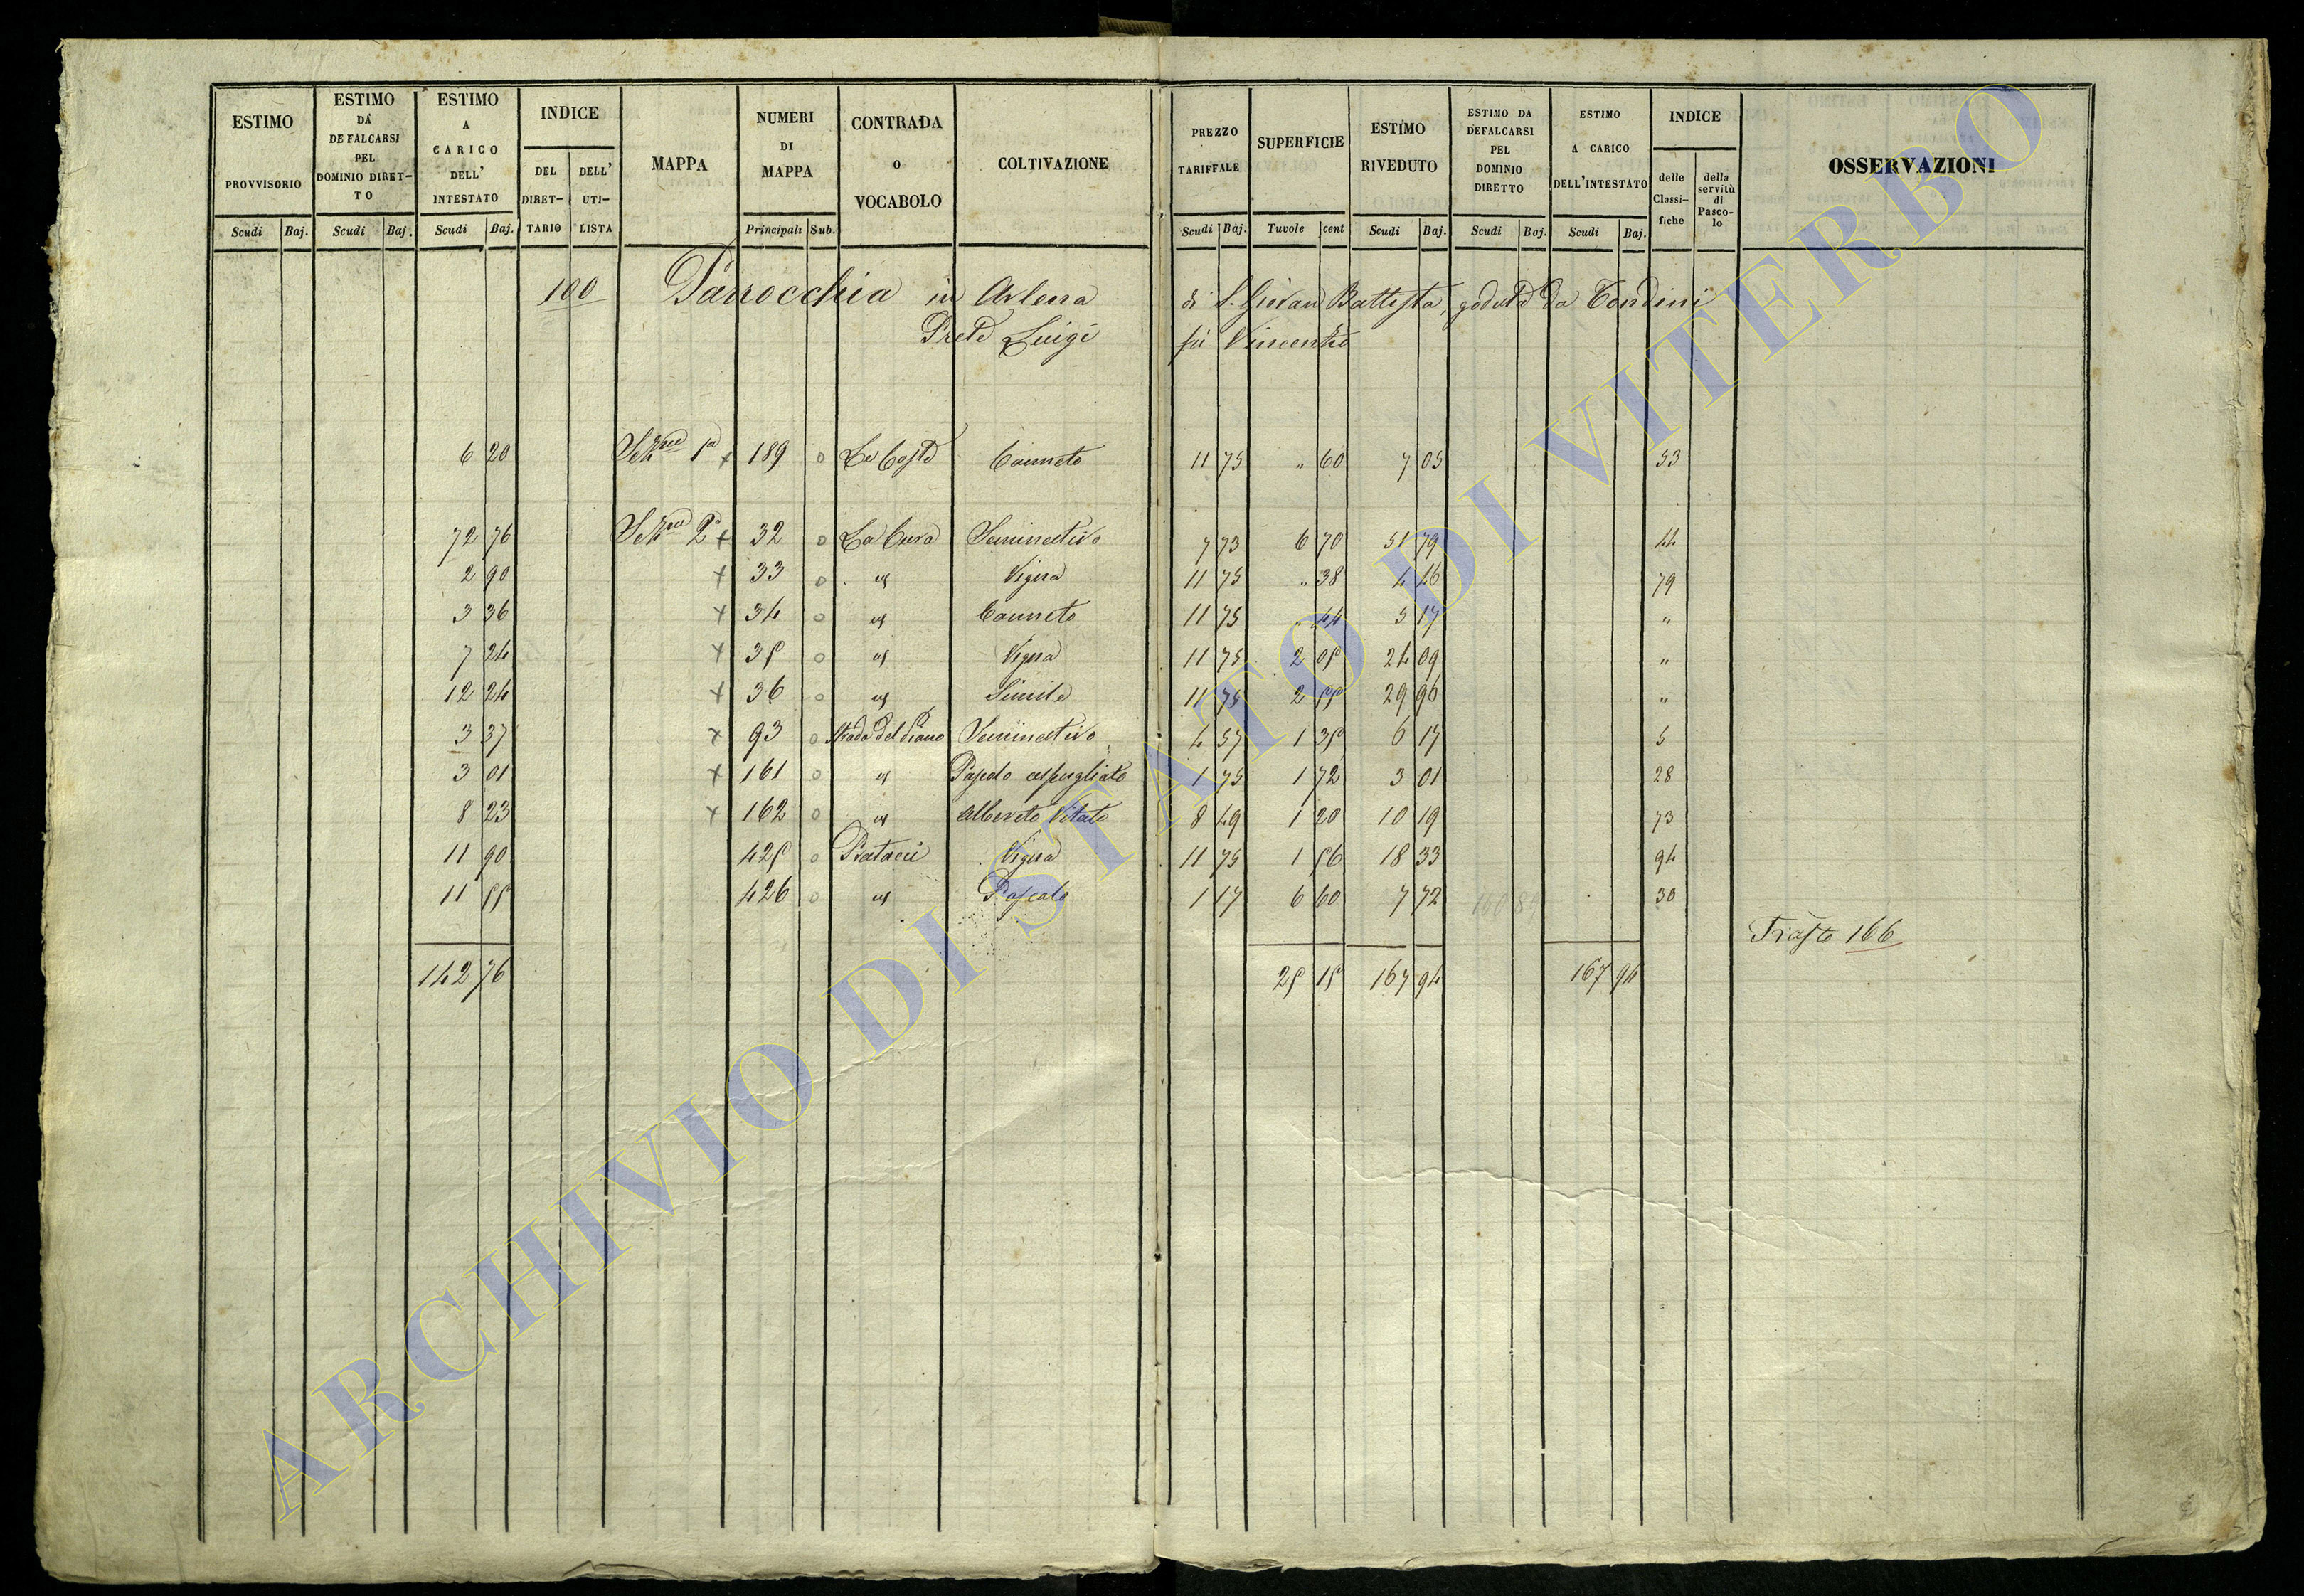 ESTIMO PROVVISORIO Scudi Baj.
ESTIMO DA DEFALCARSI PEL DOMINIO DIRETTO Scudi Baj.
ESTIMO A CARICO DELL' INTESTATO Scudi Baj.
INDICE DEL DIRETTARIO DELL' UTILISTA
MAPPA
NUMERI DI MAPPA Principali Sub.
CONTRADA O VOCABOLO
COLTIVAZIONE
PREZZO TARIFFALE Scudi Baj.
SUPERFICIE Tavole cent
ESTIMO RIVEDUTO Scudi Baj.
ESTIMO DA DEFALCARSI PEL DOMINIO DIRETTO Scudi Baj.
ESTIMO A CARICO DELL'INTESTATO Scudi Baj.
INDICE delle Classifiche della servitù di Pascolo
OSSERVAZIONI
100 Parrocchia in Arlena di S. Giovan Battista, goduta da Tondini
Prete Luigi fu Vincenzo
6 20 Sezne 1a x 189 o Le Coste Canneto 11 75 " 60 7 05 53
72 76 Sezne 2a x 32 o La Cura Seminativo 7 73 6 70 51 79 44
2 90 x 33 o " Vigna 11 75 " 38 4 46 79
3 36 x 34 o " Canneto 11 75 " 44 5 17 "
7 24 x 35 o " Vigna 11 75 2 05 24 09 "
12 24 x 36 o " Simile 11 75 2 55 29 96 "
3 37 x 93 o Strada del Piano Seminativo 4 57 1 35 6 17 5
3 01 x 161 o " Pascolo cespugliato 1 75 1 72 3 01 28
8 23 x 162 o " Alberato Vitato 8 49 1 20 10 19 73
11 90 425 o Pratacci Vigna 11 75 1 56 18 33 94
11 55 426 o " Pascolo 1 17 6 60 7 72 30
Trasto 166
142 76 25 15 167 94 167 94
ARCHIVIO DI STATO DI VITERBO